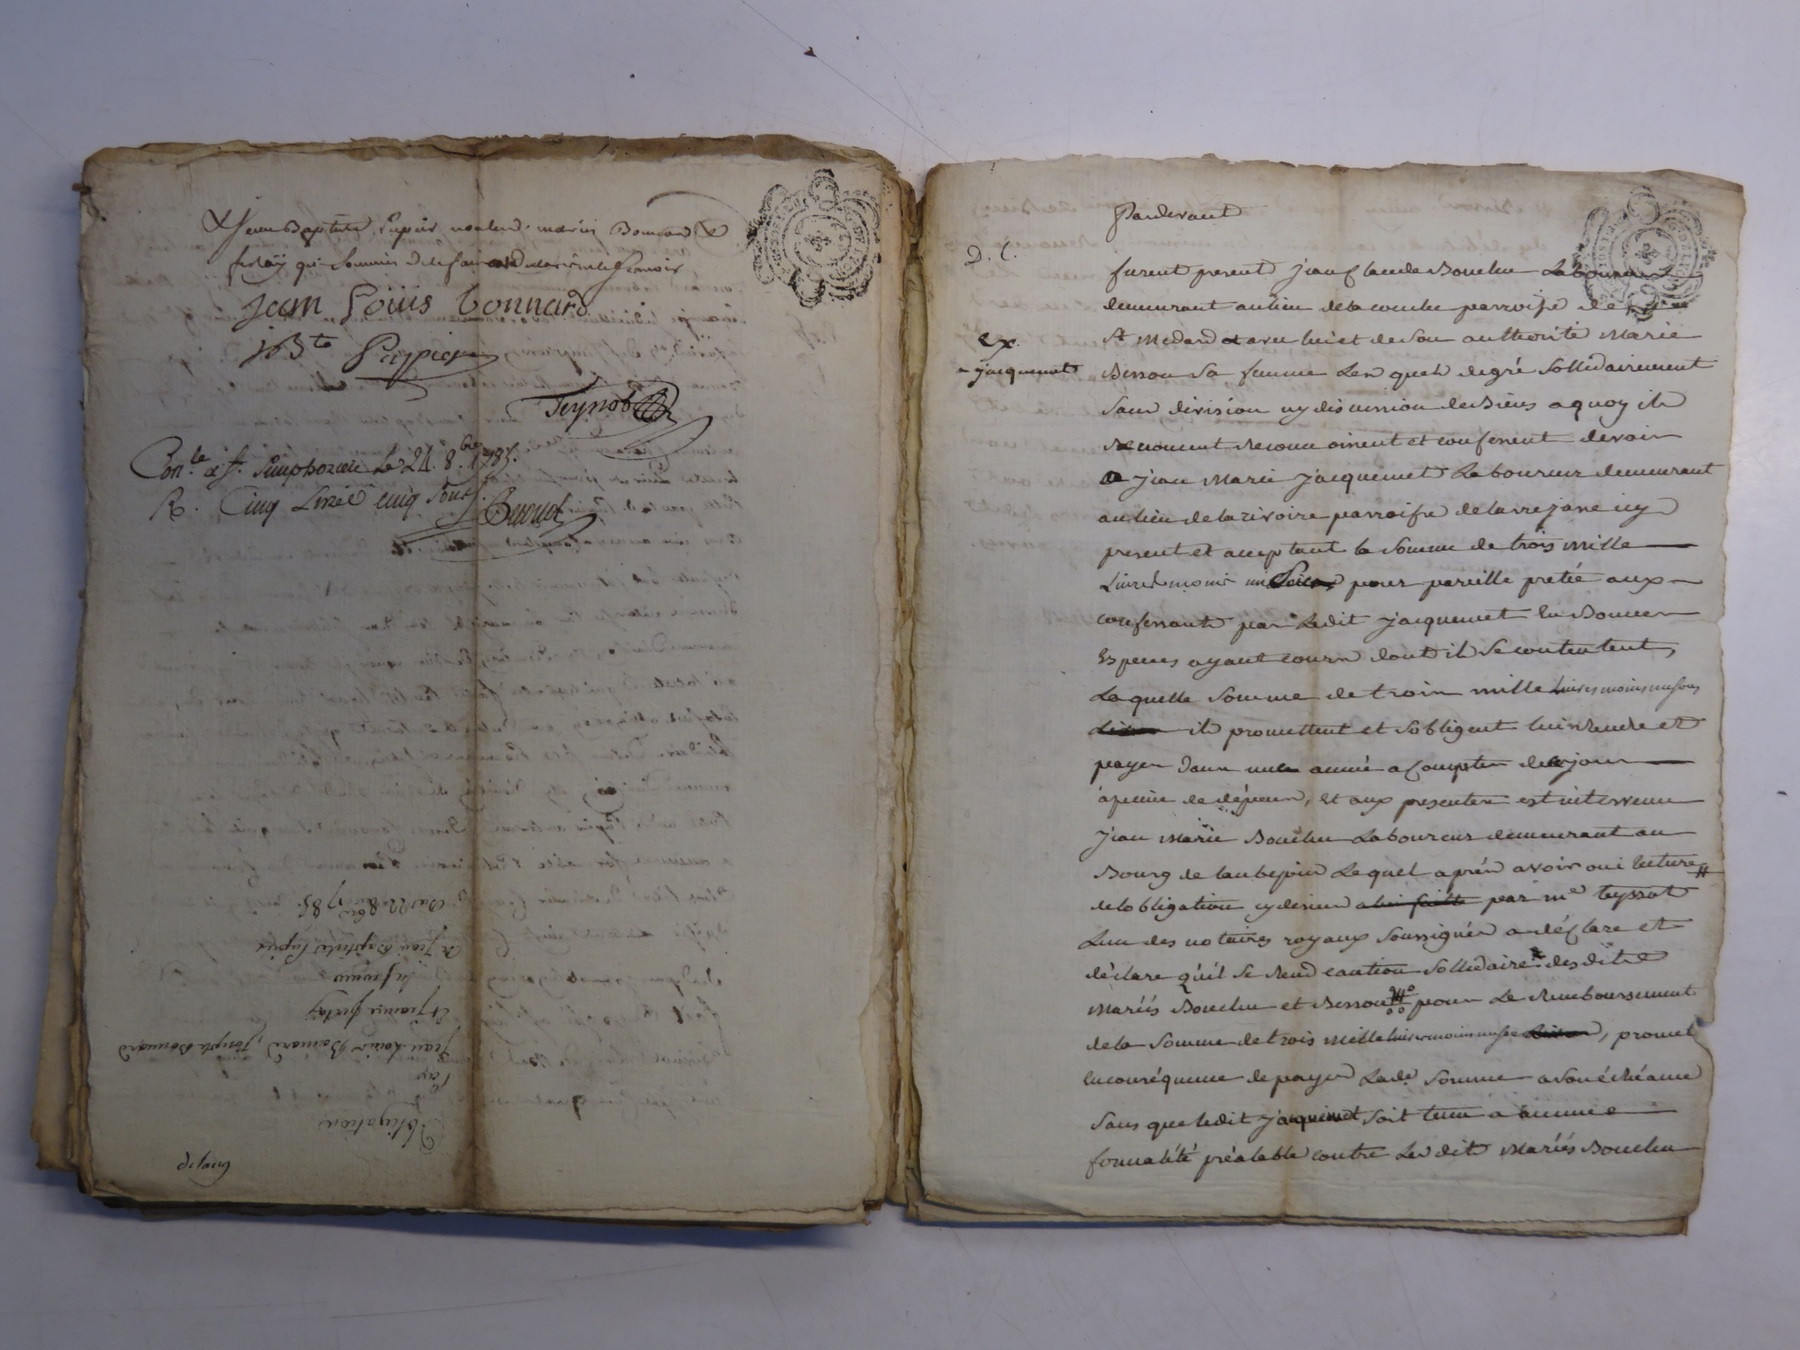 Jean Baptiste Pupier marin Bonnard
Jean Loüis bonnard
jbte Puppier
Teyssot
Con.le a St. Simphorien Le 24. 8.bre 1785.
R. Cinq Livre cinq Sous
Obligation
par
Jean Louis Bonnard, joseph Bonnard
et jeanne
a Jean Baptiste Pupier
Du 22 8bre 1785.
Pardevant
D. C.
furent present jean Claude Bouchu Laboureur
demeurant au lieu de la couche parroisse de
St Medard et avec lui et de son authorité Marie
Besson Sa femme Lesquels de gré Sollidairement
Sans division ny discussion de Biens a quoy ils
Renoncent Reconnoissent et confessent devoir
Ex.
a jacquemet
a jean Marie jacquemet Laboureur demeurant
au lieu de la rivoire parroisse de larrejasse icy
present et acceptant la Somme de trois mille
Livres moins un Sou pour pareille pretée aux
confessants par Ledit jacquemet en Bonnes
Especes ayant cours dont ils Se contentent,
Laquelle Somme de trois mille Livres moins un sous
ils promettent et s'obligent lui rendre et
payer dans une année a Compter de ce jour
a peine de dépens, et aux presentes est intervenu
jean Marie Bouchu Laboureur demeurant au
Bourg de laubepin Lequel après avoir oui lecture
de lobligation cy dessus a lui faitte par me teyssot
Lun des notaires royaux Soussignés a déclare et
déclare qu'il Se Rend caution Sollidaire desdits
Mariés Bouchu et Besson pour Le Remboursement
de la Somme de trois Mille livres moins un sou, promet
en conséquence de payer Lade Somme a Son échéance
Sans que ledit jacquemet Soit tenu a aucune
formalité préalable contre Lesdits Mariés Bouchu